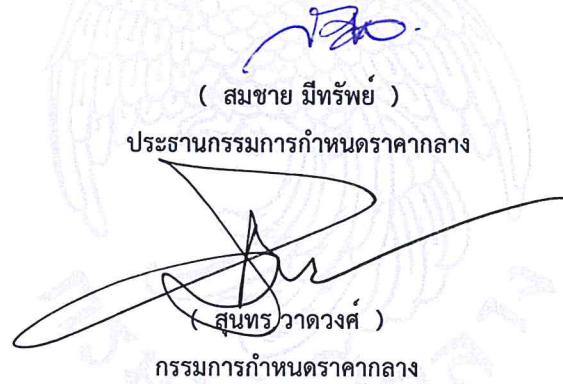 ( สมชาย มีทรัพย์ )
ประธานกรรมการกำหนดราคากลาง
( สุนทร วาดวงศ์ )
กรรมการกำหนดราคากลาง